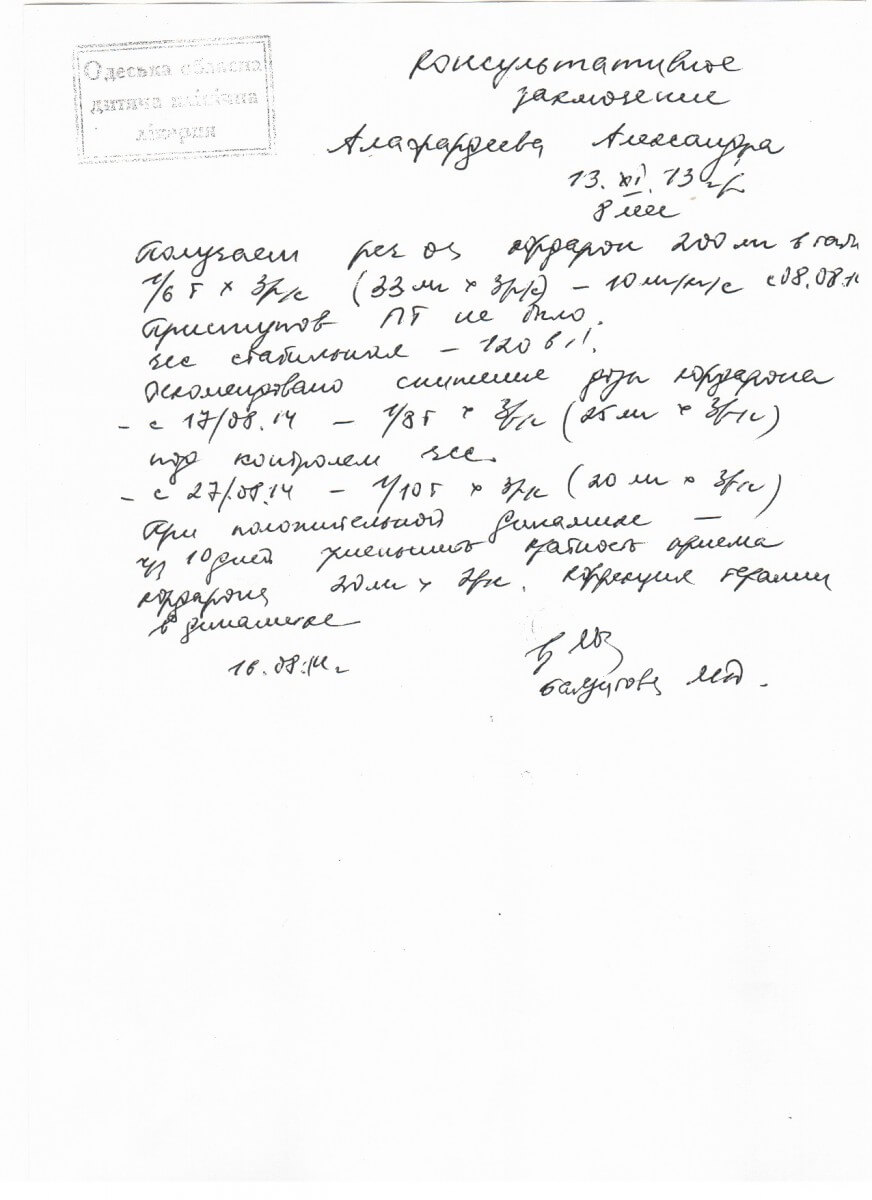 Одеська обласна
дитяча клінічна
лікарня
Консультативное
заключение
Александра
13. XI. 13 г/р
8 мес
Получает per os кордарон 200 мг в табл
1/6 т × 3р/с (33 мг × 3р/с) – 10 мг/кг/с с 08.08.14
Приступов ПТ не было.
ЧСС стабильная – 120 в 1'.
Рекомендовано снижение дозы кордарона
– с 17/08.14 – 1/8 т × 3р/с (25 мг × 3р/с)
под контролем ЧСС.
– с 27/08.14 – 1/10 т × 3р/с (20 мг × 3р/с)
При положительной динамике –
чз 10 дней уменьшить кратность приема
кордарона 20 мг × 2р/с. Коррекция терапии
в динамике
16.08.14 г